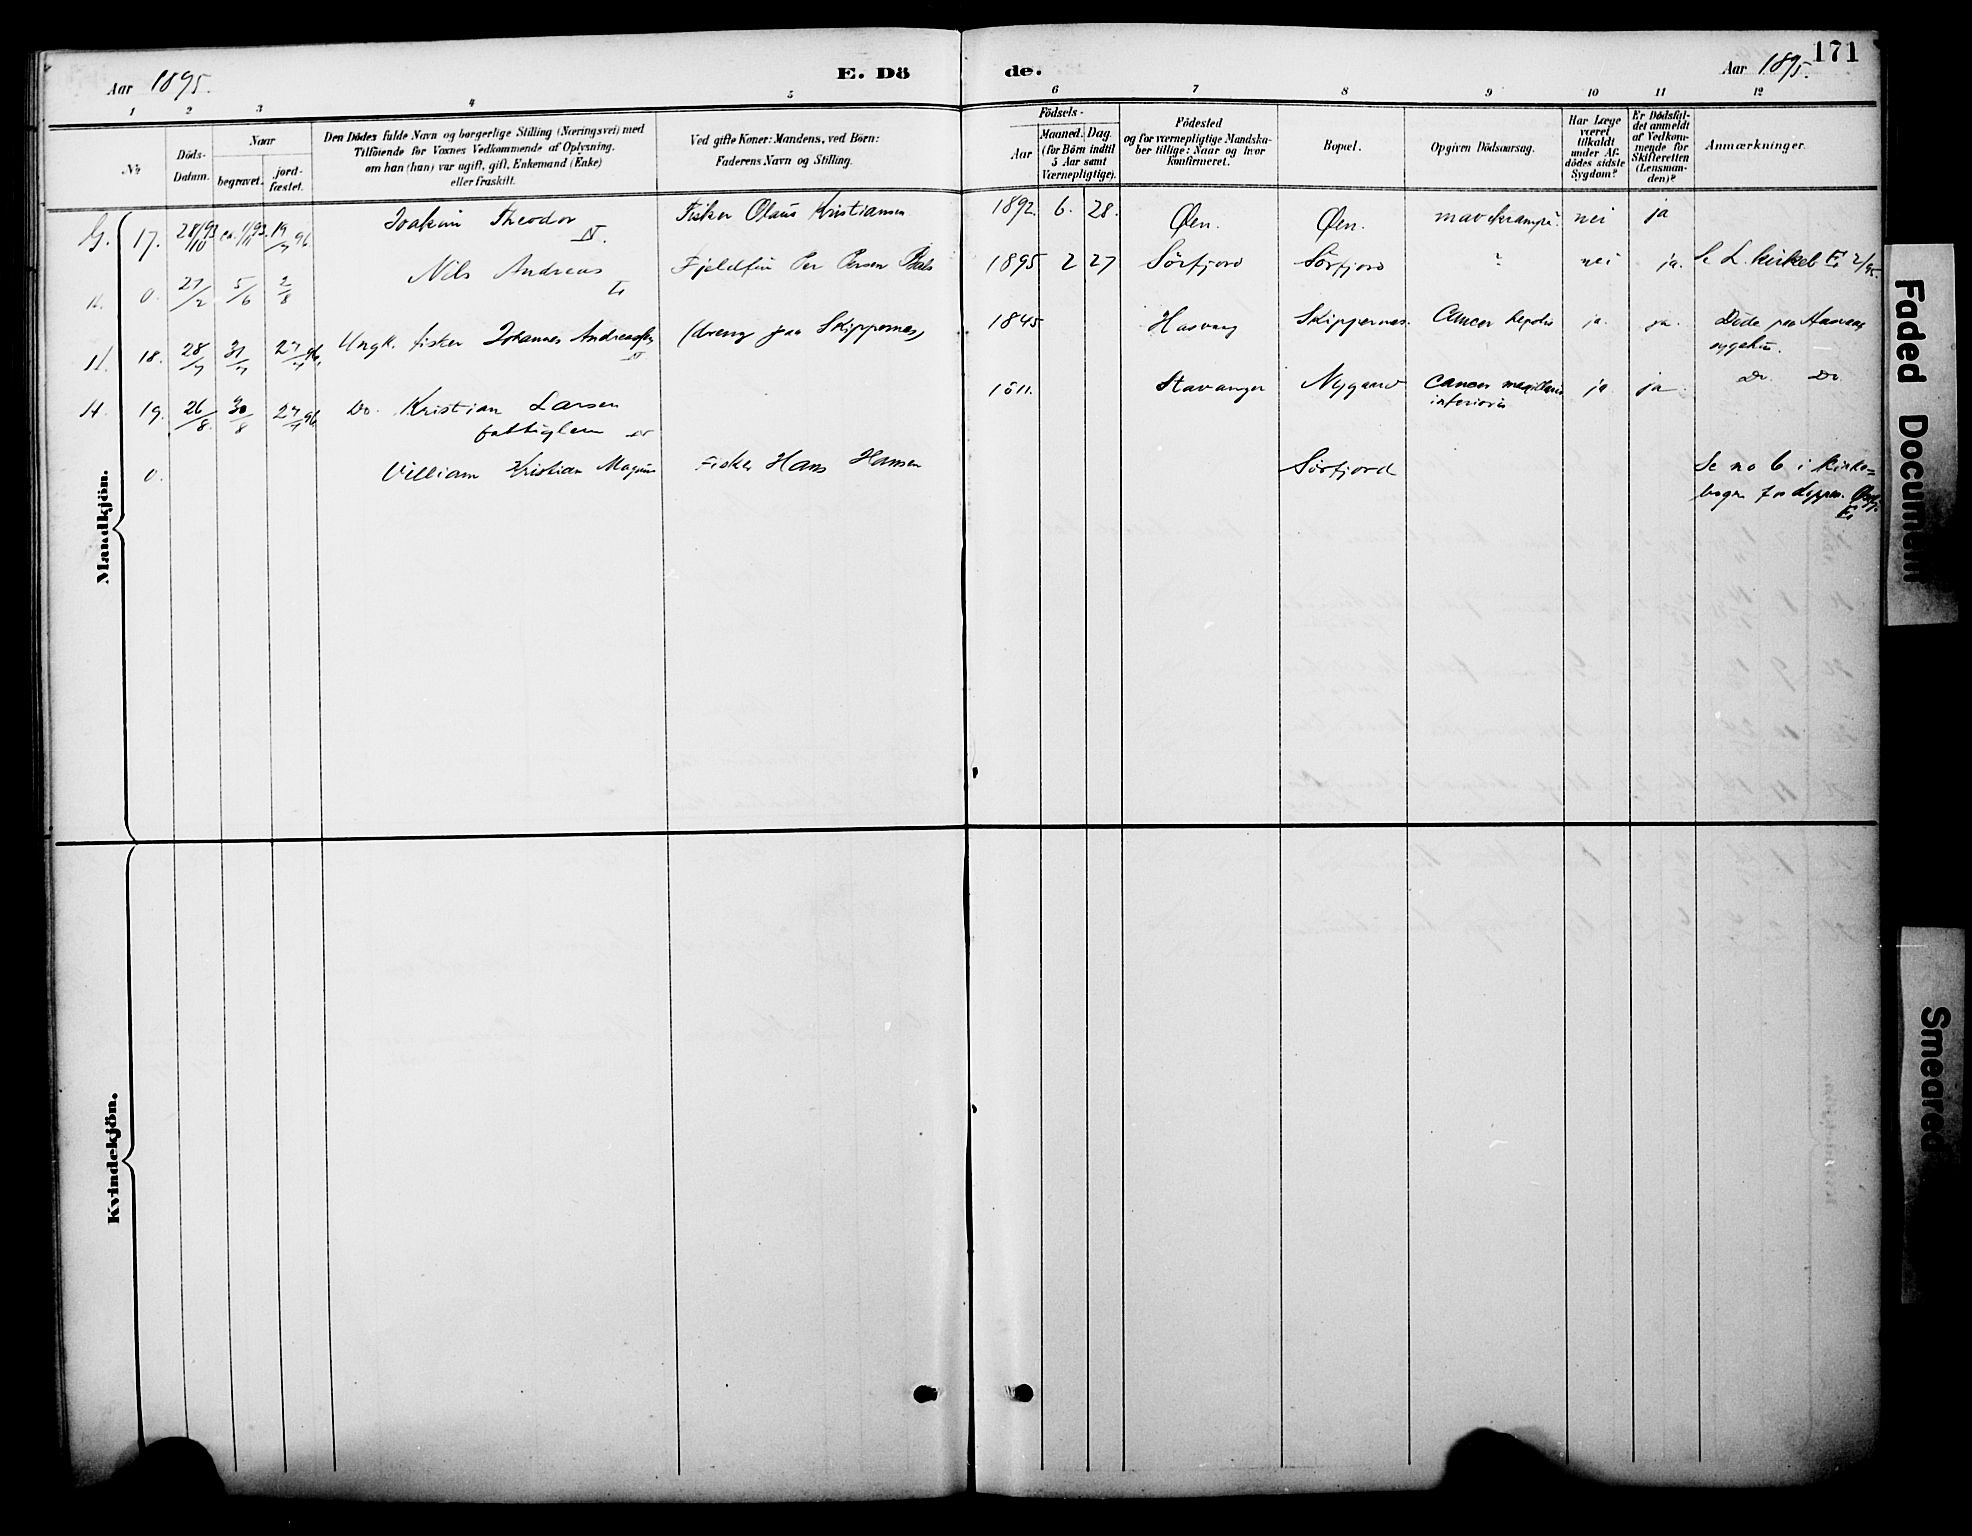 171
Aar 1895.
E. Dö
de.
Aar 1895.
1 2 3 4 5 6 7 8 9 10 11 12
No
Döds-
Datum.
Naar
begravet.
jord-
fæstet.
Den Dödes fulde Navn og borgerlige Stilling (Næringsvei) med
Tilföiende for Voxnes Vedkommende af Oplysning,
om han (hun) var ugift, gift, Enkemand (Enke)
eller fraskilt.
Ved gifte Koner: Mandens, ved Börn:
Faderens Navn og Stilling.
Födsels-
Aar
Maaned. Dag.
(for Börn indtil
5 Aar samt
Værnepligtige).
Födested
og for værnepligtige Mandska-
ber tillige: Naar og hvor
konfirmeret.
Bopæl.
Opgiven Dödsaarsag.
Har Læge
været
tilkaldt
under Af-
dödes sidste
Sygdom?
Er Dødsfal-
det anmeldt
af Vedkom-
mende for
Skifteretten
(Lensman-
den)?
Anmærkninger.
G. 17. 28/10 93 ca. 1/11 93. 19/7 96 Joakim Theodor N. Fisker Olaus Kristiansen 1892. 6. 28. Øen. Øen. mavekrampe. nei ja
0. 27/2 5/6 2/8 Nils Andreas Fjeldfin Per Persen 1895 2 27 Sörfjord Sörfjord ? nei ja. Se L. kirkeb 2/95.
H. 18. 28/7 31/7 Ungk. fisker Johannes (dreng paa Skippernes) 1845 Hasvaag Skippernes. Cancer hepatis ja. ja. Døde paa Hasvaag
sygehus.
H. 19. 26/8. 30/8 Do. Kristian Larsen Stavanger Nygaard Cancer maxillaris ja ja Do. Do
fattiglem
inferioris
0. Villiam Kristian Magnus Fisker Hans Hansen Sörfjord Se no 6 i kirke=
bogen for
Mandkjön.
Kvindekjön.
Faded Document
Smeared